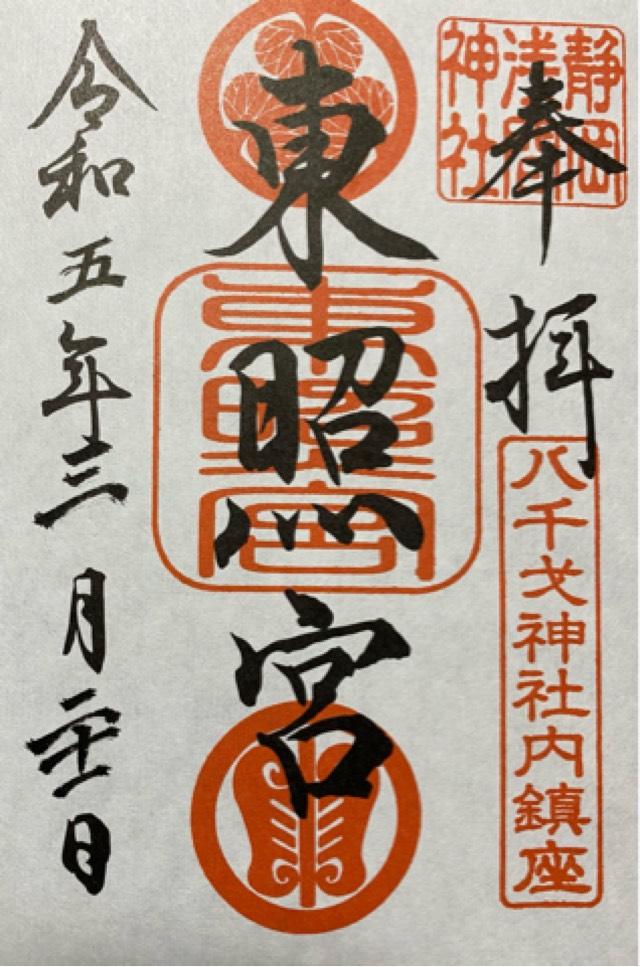 静岡
浅間
神社
奉拝
八千戈神社内鎮座
東照宮
東照宮
令和五年三月二十一日